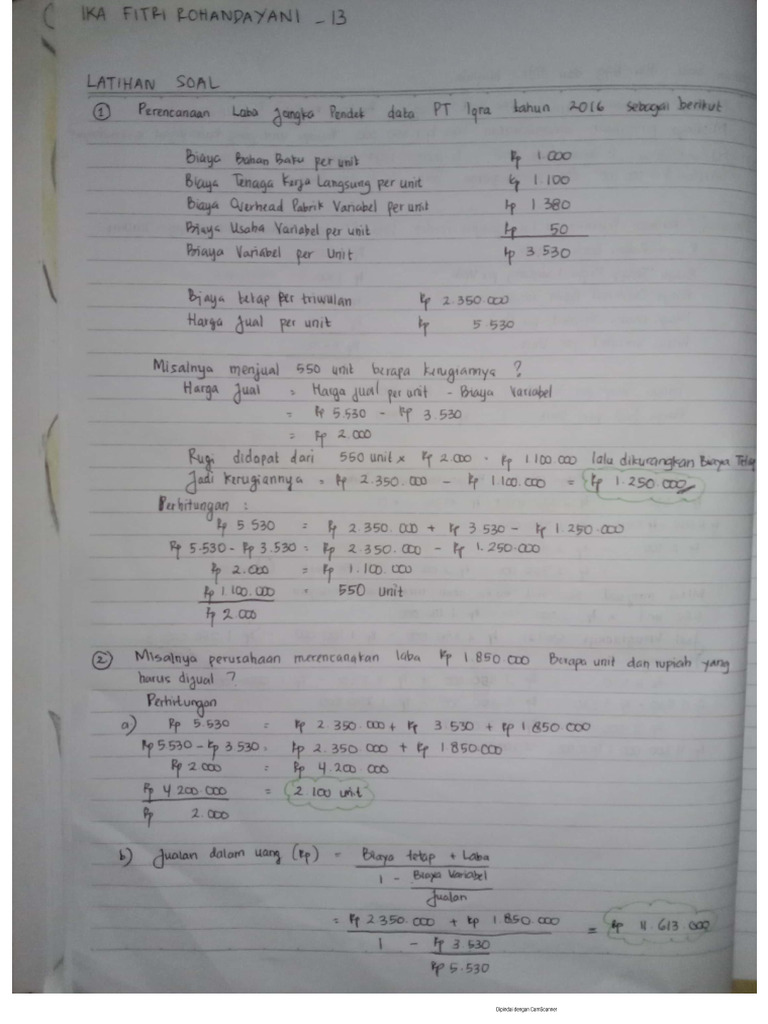 IKA FITRI ROHANDAYANI - 13
LATIHAN SOAL
① Perencanaan Laba Jangka Pendek data PT Iqra tahun 2016 sebagai berikut
Biaya Bahan Baku per unit Rp 1.000
Biaya Tenaga Kerja Langsung per unit Rp 1.100
Biaya Overhead Pabrik Variabel per unit Rp 1 380
Biaya Usaha Variabel per unit Rp 50
Biaya Variabel per Unit Rp 3 530
Biaya tetap per triwulan Rp 2.350.000
Harga Jual per unit Rp 5.530
Misalnya menjual 550 unit berapa kerugiannya ?
Harga Jual = Harga jual per unit - Biaya Variabel
= Rp 5.530 - Rp 3.530
= Rp 2.000
Rugi didapat dari 550 unit x Rp 2.000 = Rp 1.100.000 lalu dikurangkan Biaya Tetap
Jadi kerugiannya = Rp 2.350.000 - Rp 1.100.000 = Rp 1.250.000
Perhitungan :
Rp 5 530 = Rp 2.350.000 + Rp 3 530 - Rp 1.250.000
Rp 5.530 - Rp 3.530 = Rp 2.350.000 - Rp 1.250.000
Rp 2.000 = Rp 1.100.000
Rp 1 100.000 = 550 unit
Rp 2.000
② Misalnya perusahaan merencanakan laba Rp 1.850 000 Berapa unit dan rupiah yang
harus dijual ?
Perhitungan
a) Rp 5.530 = Rp 2.350.000 + Rp 3.530 + Rp 1 850.000
Rp 5530 - Rp 3.530 = Rp 2.350.000 + Rp 1 850.000
Rp 2 000 = Rp 4.200.000
Rp 4 200.000 = 2 100 unit
Rp 2.000
b) Jualan dalam uang (Rp) = Biaya tetap + Laba
1 - Biaya Variabel
Jualan
= Rp 2 350.000 + Rp 1.850.000 = Rp 11.613.000
1 - Rp 3 530
Rp 5.530
Dipindai dengan CamScanner